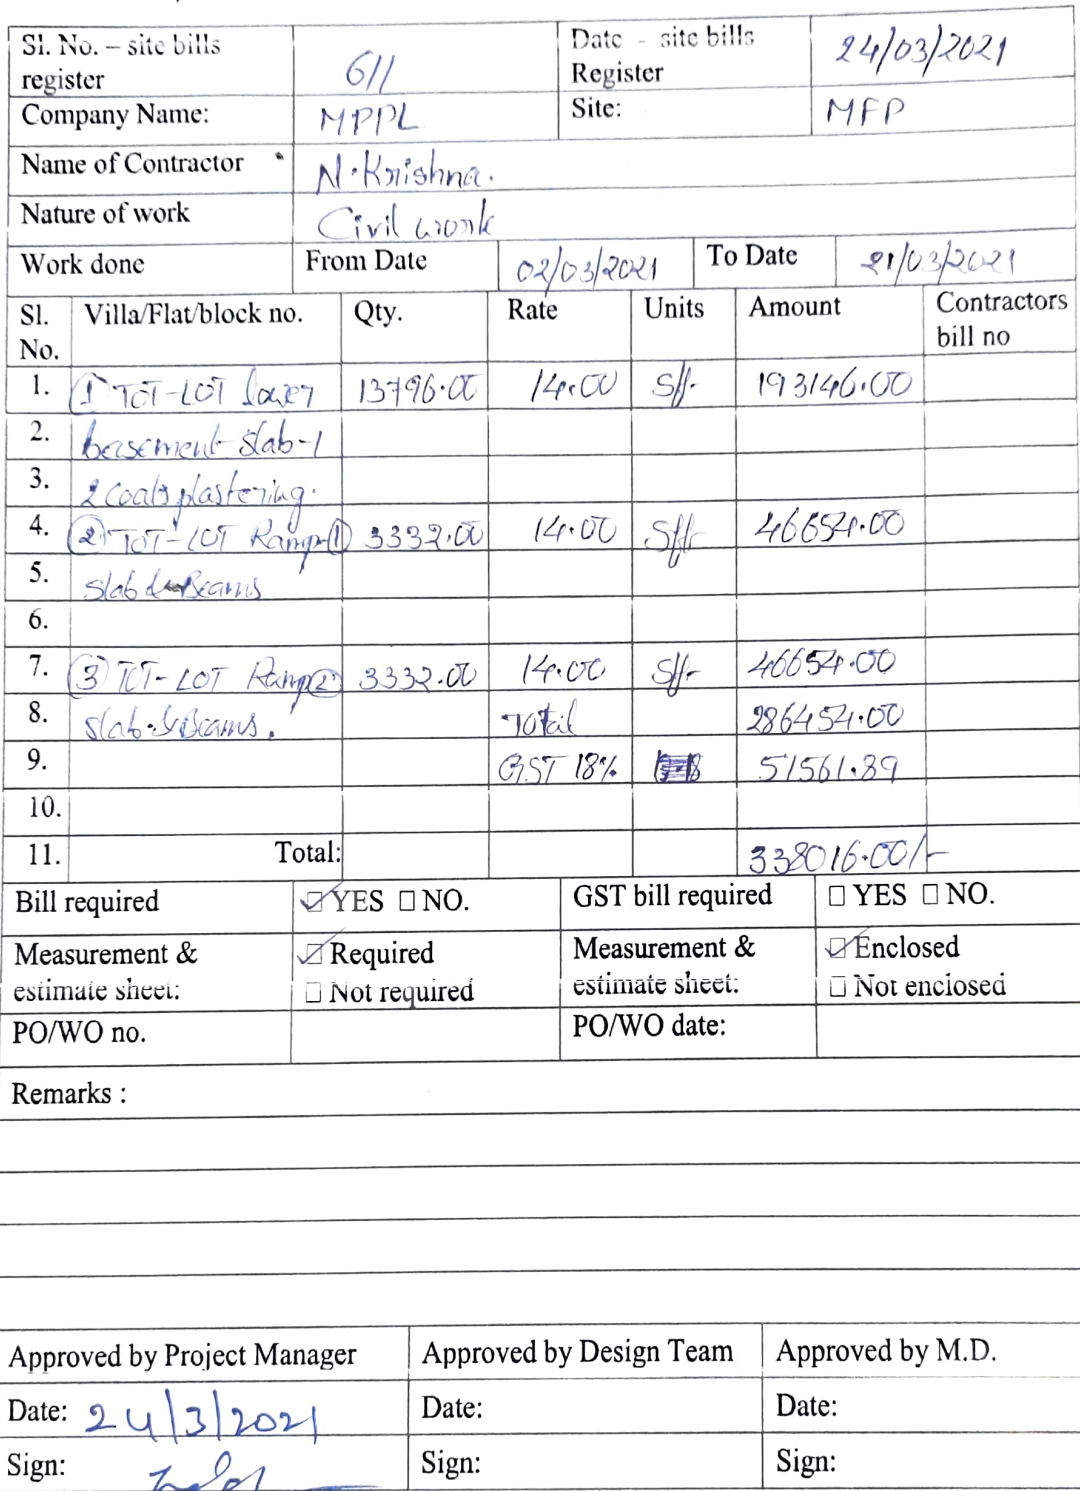 Sl. No. – site bills register 611 Date - site bills Register 24/03/2021
Company Name: MPPL Site: MFP
Name of Contractor N. Krishna.
Nature of work Civil work
Work done From Date 02/03/2021 To Date 21/03/2021
Sl. No. Villa/Flat/block no. Qty. Rate Units Amount Contractors bill no
1. ① TOT-LOT lower 13796.00 14.00 Sft. 193146.00
2. basement slab-1
3. 2 coats plastering.
4. ② TOT-LOT Ramp-① 3332.00 14.00 Sft 46654.00
5. Slab & Beams
6.
7. ③ TOT-LOT Ramp② 3332.00 14.00 Sft 46654.00
8. slab & Beams. Total 286454.00
9. GST 18% 51561.89
10.
11. Total: 338016.00/-
Bill required ☑ YES ☐ NO. GST bill required ☐ YES ☐ NO.
Measurement & estimate sheet: ☑ Required ☐ Not required Measurement & estimate sheet: ☑ Enclosed ☐ Not enclosed
PO/WO no. PO/WO date:
Remarks :
Approved by Project Manager Approved by Design Team Approved by M.D.
Date: 24/3/2021 Date: Date:
Sign: Sign: Sign: